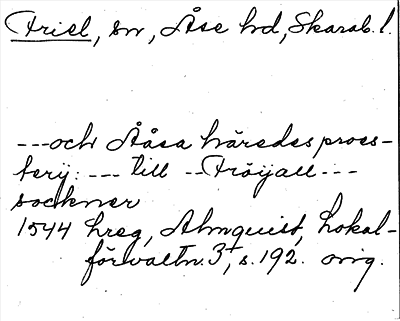 Friel, sn, Åse hd, Skarab. l.
---ochÅåsa häredes pross-
terij: --- till -- Fröÿall ---
socknner
1544 hreg, Almquist, Lokal-
förvaltn. 3, s. 192. orig.